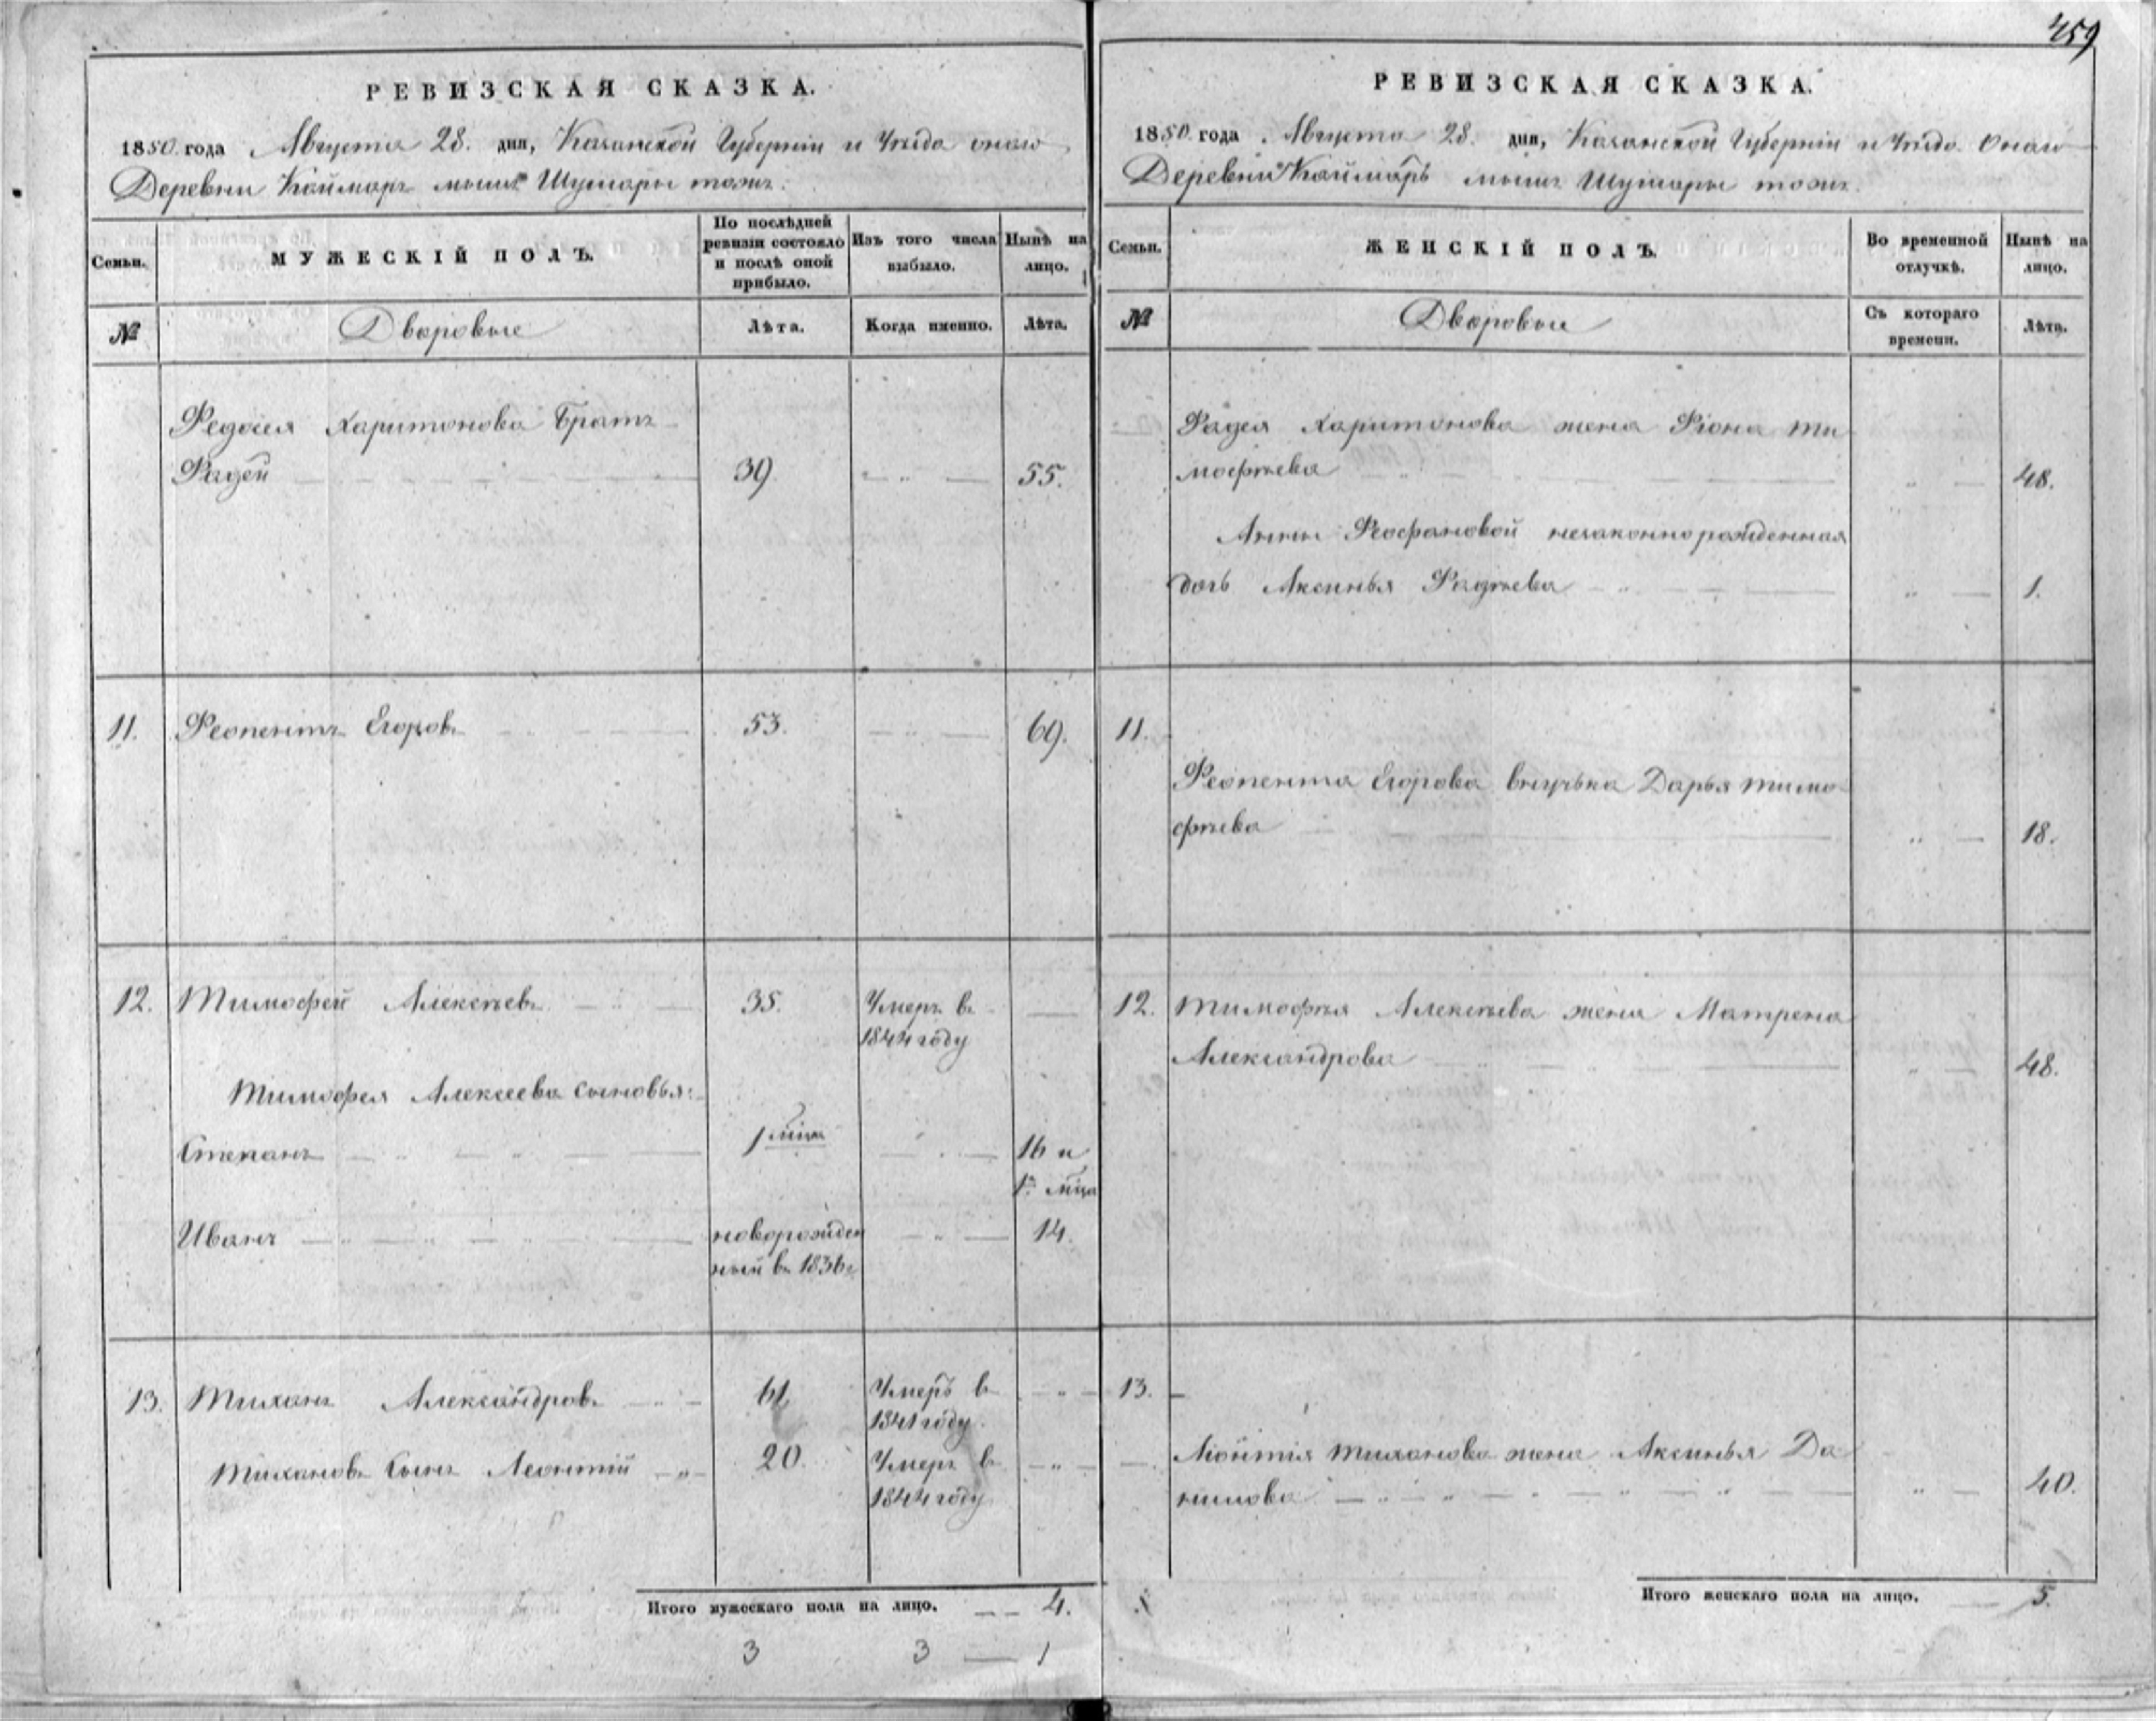 459
РЕВИЗСКАЯ СКАЗКА.
1850 года Августа 28. дня, Казанской Губерніи и Уѣзда онаго
Деревни Каймаръ Шумары тожъ.
Семьи.
МУЖЕСКІЙ ПОЛЪ.
По послѣдней
ревизіи состояло
и послѣ оной
прибыло.
Изъ того числа
выбыло.
Нынѣ на
лицо.
№
Дворовые
Лѣта.
Когда именно.
Лѣта.
Федосея Харитонова Братъ
Фадей 39 55.
11. Феопентъ Егоровъ 53. 69.
12. Тимофей Алексѣевъ 35. Умеръ въ
1844 году
Тимофея Алексеева сыновья:
Степанъ 1 мѣца 16 и
1 мѣца
Иванъ новорожден 14.
ный въ 1836 г
13. Тиханъ Александровъ 61 Умеръ въ
1841 году.
Тихановъ Сынъ Леонтій 20. Умеръ въ
1844 году
Итого мужескаго пола на лицо. 4.
3 3 1
РЕВИЗСКАЯ СКАЗКА.
1850 года Августа 28. дня, Казанской Губерніи и Уѣзда Онаго
Деревни Каймаръ Шумары тожъ.
Семьи.
ЖЕНСКІЙ ПОЛЪ.
Во временной
отлучкѣ.
Нынѣ на
лицо.
№
Дворовые
Съ котораго
времени.
Лѣта.
Фадея Харитонова жена Фіона Ти
мофѣева 48.
Анны Феофановой незаконнорожденная
дочь Аксинья Фадѣева 1.
11.
Феопента Егорова внучька Дарья Тимо
фѣева 18.
12. Тимофѣя Алексѣева жена Матрена
Александрова 48.
13.
Лѣонтія Тиханова жена Аксинья Да
нилова 40.
Итого женскаго пола на лицо. 5.